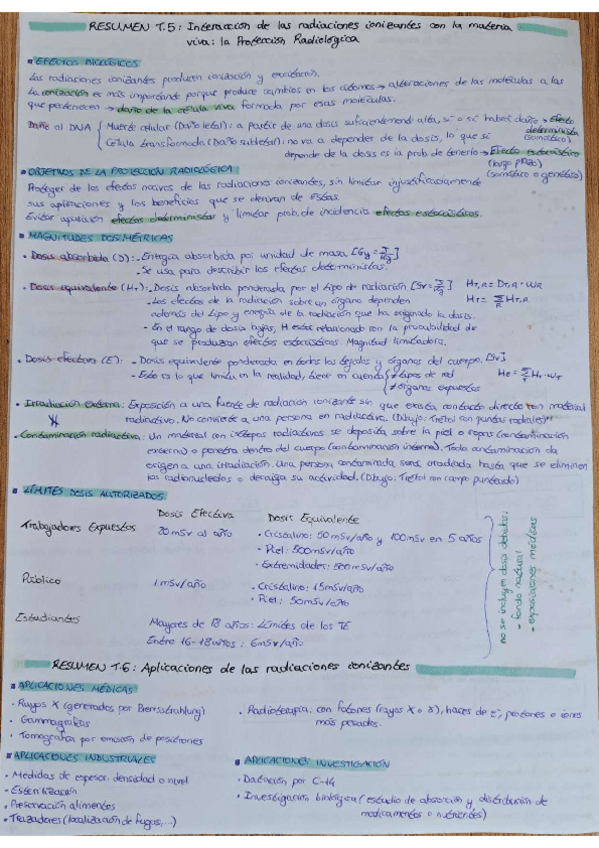 RESUMEN T.5: Interacción de las radiaciones ionizantes con la materia
viva: la Protección Radiológica
▪ EFECTOS BIOLÓGICOS
Las radiaciones ionizantes producen ionización y excitación.
La ionización es más importante porque produce cambios en los átomos → alteraciones de las moléculas a las
que pertenecen → daño de la célula viva formada por esas moléculas.
Daño al DNA { Muerte celular (Daño letal): a partir de una dosis suficientemente alta, sí o sí habrá daño → Efecto
determinista
(somático)
Célula transformada (Daño subletal): no va a depender de la dosis, lo que sí
depende de la dosis es la prob. de tenerlo → Efecto estocástico
(largo plazo)
(somático o genético)
▪ OBJETIVOS DE LA PROTECCIÓN RADIOLÓGICA:
Proteger de los efectos nocivos de las radiaciones ionizantes, sin limitar injustificadamente
sus aplicaciones y los beneficios que se derivan de éstas.
Evitar aparición efectos deterministas y limitar prob. de incidencia efectos estocásticos.
▪ MAGNITUDES DOSIMÉTRICAS
• Dosis absorbida (D): - Energía absorbida por unidad de masa [Gy = J/Kg]
- Se usa para describir los efectos deterministas.
• Dosis equivalente (HT): - Dosis absorbida ponderada por el tipo de radiación [Sv = J/Kg] HT,R = DT,R · WR
- Los efectos de la radiación sobre un órgano dependen HT = Σ HT,R
R
además del tipo y energía de la radiación que ha originado la dosis.
- En el rango de dosis bajas, H está relacionado con la probabilidad de
que se produzcan efectos estocásticos. Magnitud limitadora.
• Dosis efectiva (E): - Dosis equivalente ponderada en todos los tejidos y órganos del cuerpo. [Sv]
- Esto es lo que limita en la realidad, tiene en cuenta { ≠ tipos de rad HE = Σ HT · WT
T
≠ órganos expuestos
• Irradiación externa: Exposición a una fuente de radiación ionizante sin que exista contacto directo con material
radiactivo. No convierte a una persona en radiactiva. (Dibujo: Trébol con puntas radiales)
• Contaminación radiactiva: Un material con isótopos radiactivos se deposita sobre la piel o ropas (contaminación
externa) o penetra dentro del cuerpo (contaminación interna). Toda contaminación da
origen a una irradiación. Una persona contaminada será irradiada hasta que se eliminen
los radionucleidos o decaiga su actividad. (Dibujo: Trébol con campo punteado)
▪ LÍMITES DOSIS AUTORIZADOS:
Dosis Efectiva Dosis Equivalente
Trabajadores Expuestos 20 mSv al año • Cristalino: 50 mSv/año y 100 mSv en 5 años
• Piel: 500 mSv/año
• Extremidades: 500 mSv/año
Público 1 mSv/año • Cristalino: 15 mSv/año
• Piel: 50 mSv/año
Estudiantes Mayores de 18 años: Límites de los TE
Entre 16-18 años: 6 mSv/año
no se incluyen dosis debidas:
- fondo natural
- exposiciones médicas
RESUMEN T.6: Aplicaciones de las radiaciones ionizantes
▪ APLICACIONES MÉDICAS
• Rayos X (generados por Bremsstrahlung)
• Gammagrafías
• Tomografía por emisión de positrones
• Radioterapia: con fotones (rayos X o γ), haces de e⁻, protones o iones
más pesados.
▪ APLICACIONES INDUSTRIALES
• Medidas de espesor, densidad o nivel
• Esterilización
• Preservación alimentos
• Trazadores (localización de fugas,...)
▪ APLICACIONES INVESTIGACIÓN
• Datación por C-14
• Investigación biológica (estudio de absorción y distribución de
medicamentos o nutrientes)